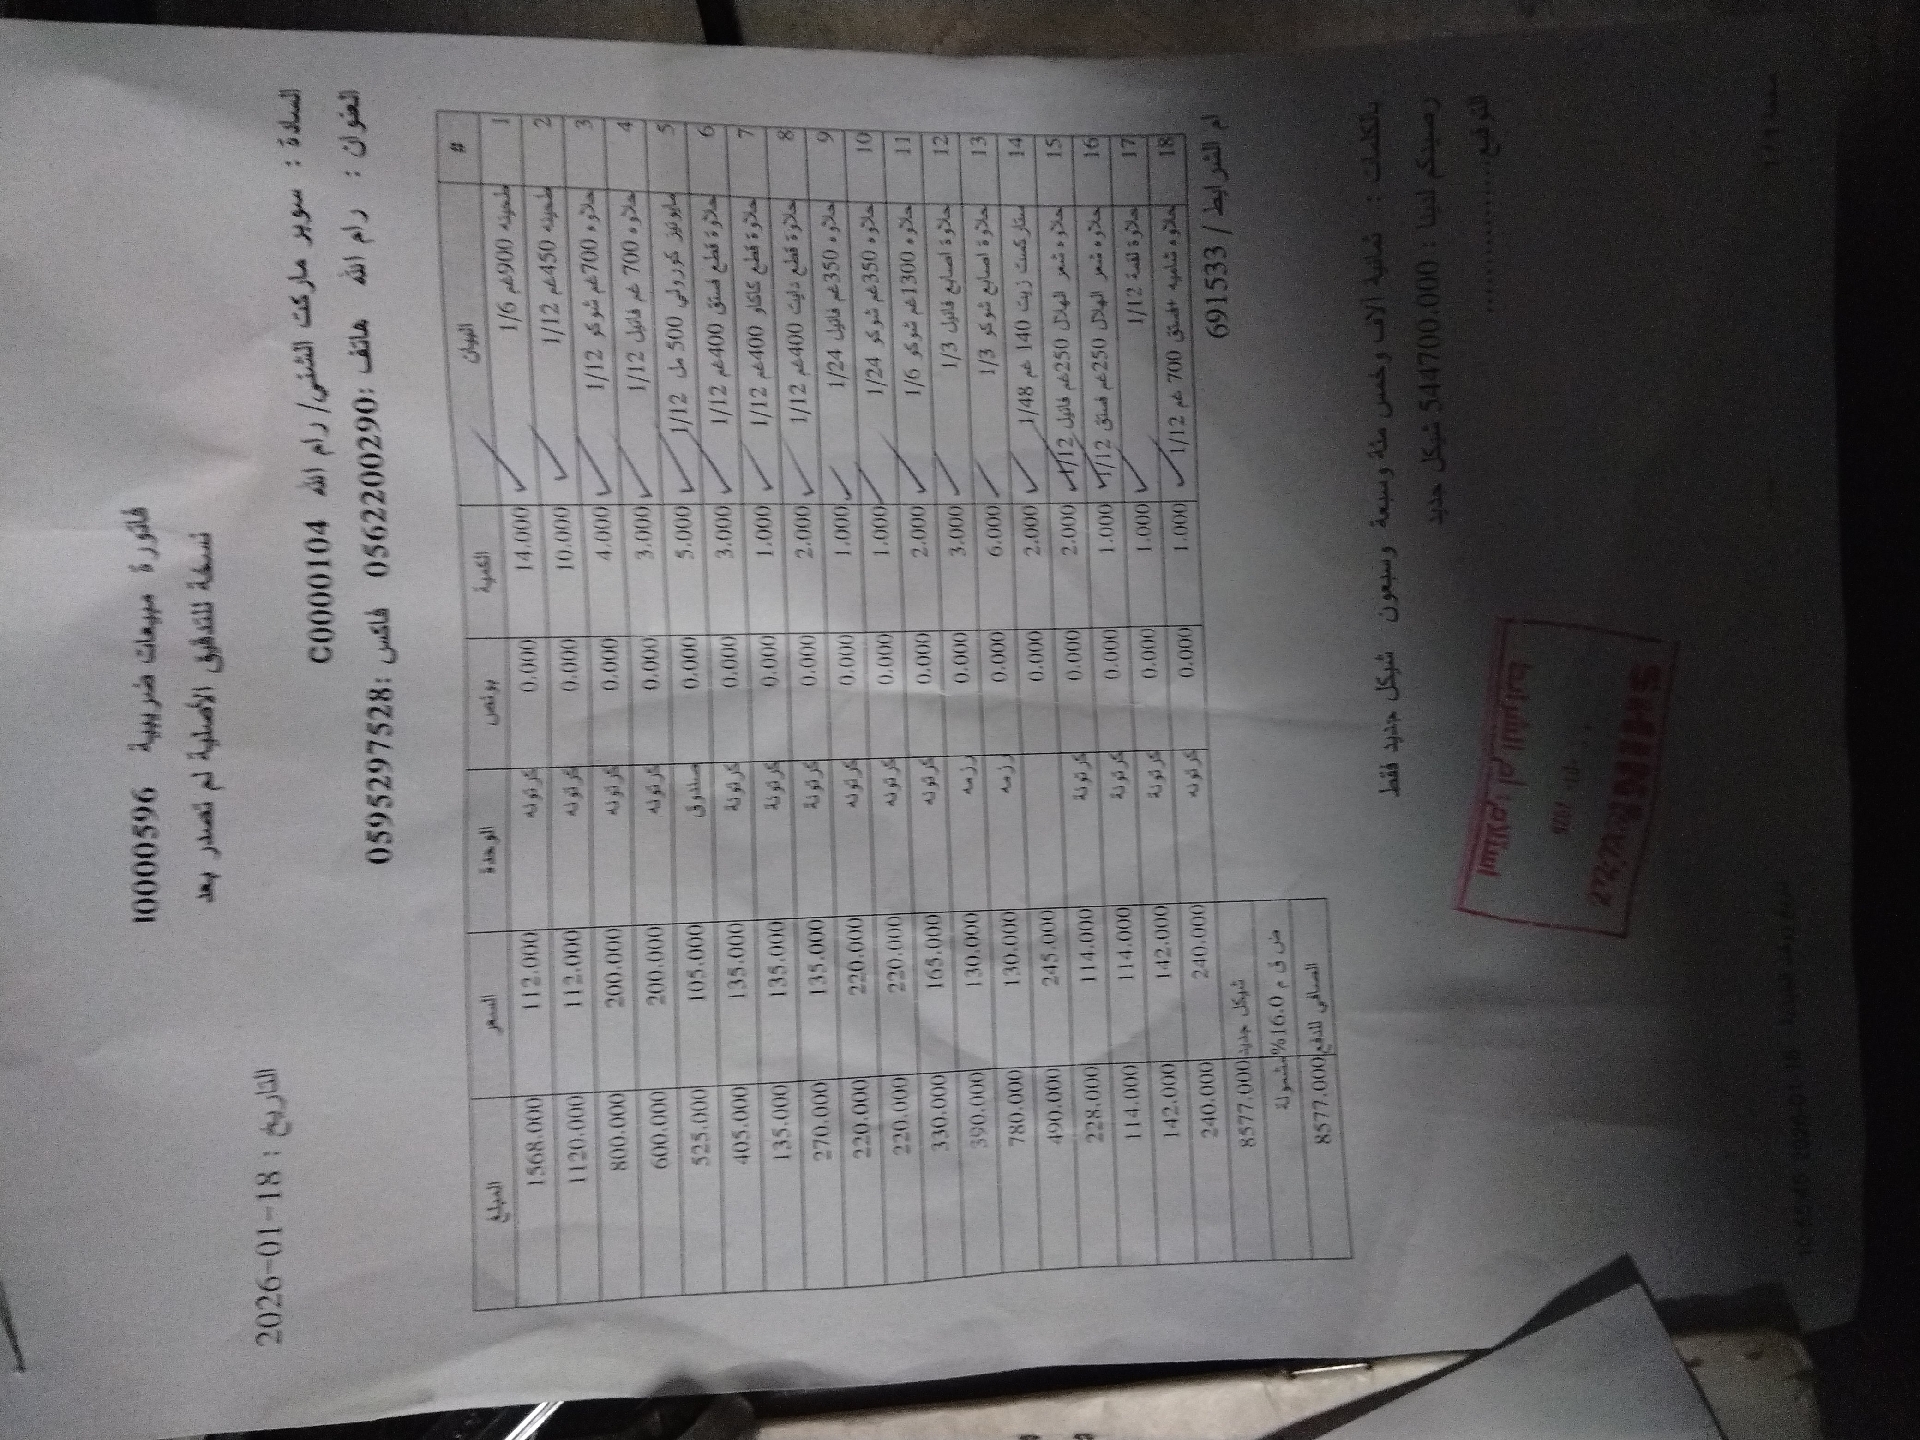 فاتورة مبيعات ضريبية I0000596
نسخة للتدقيق الأصلية لم تصدر بعد
التاريخ : 2026-01-18
السادة : سوبر ماركت الشني/ رام الله C0000104
العنوان : رام الله هاتف :0562200290 فاكس :0595297528
# البيان الكمية بونص الوحدة السعر المبلغ
1 طحينه 900غم 1/6 14.000 0.000 كرتونه 112.000 1568.000
2 طحينه 450غم 1/12 10.000 0.000 كرتونه 112.000 1120.000
3 حلاوه 700غم شوكو 1/12 4.000 0.000 كرتونه 200.000 800.000
4 حلاوه 700 غم فانيل 1/12 3.000 0.000 كرتونه 200.000 600.000
5 مايونيز كورولي 500 مل 1/12 5.000 0.000 صندوق 105.000 525.000
6 حلاوة قطع فستق 400غم 1/12 3.000 0.000 كرتونة 135.000 405.000
7 حلاوة قطع كاكاو 400غم 1/12 1.000 0.000 كرتونة 135.000 135.000
8 حلاوة قطع دايت 400غم 1/12 2.000 0.000 كرتونة 135.000 270.000
9 حلاوه 350غم فانيل 1/24 1.000 0.000 كرتونه 220.000 220.000
10 حلاوه 350غم شوكو 1/24 1.000 0.000 كرتونه 220.000 220.000
11 حلاوه 1300غم شوكو 1/6 2.000 0.000 كرتونه 165.000 330.000
12 حلاوة اصابع فانيل 1/3 3.000 0.000 رزمه 130.000 390.000
13 حلاوة اصابع شوكو 1/3 6.000 0.000 رزمه 130.000 780.000
14 ستاركست زيت 140 غم 1/48 2.000 0.000 245.000 490.000
15 حلاوه شعر الهلال 250غم فانيل 1/12 2.000 0.000 كرتونة 114.000 228.000
16 حلاوه شعر الهلال 250غم فستق 1/12 1.000 0.000 كرتونة 114.000 114.000
17 حلاوة لقمة 1/12 1.000 0.000 كرتونة 142.000 142.000
18 حلاوه شاميه +فستق 700 غم 1/12 1.000 0.000 كرتونه 240.000 240.000
شيكل جديد 8577.000
ض ق م 16.0% مشمولة
الصافي للدفع 8577.000
ام الشرايط / 691533
بالكلمات : ثمانية آلاف وخمس مئة وسبعة وسبعون شيكل جديد فقط
رصيدكم لدينا : 544700.000 شيكل جديد
التوقيع:....................